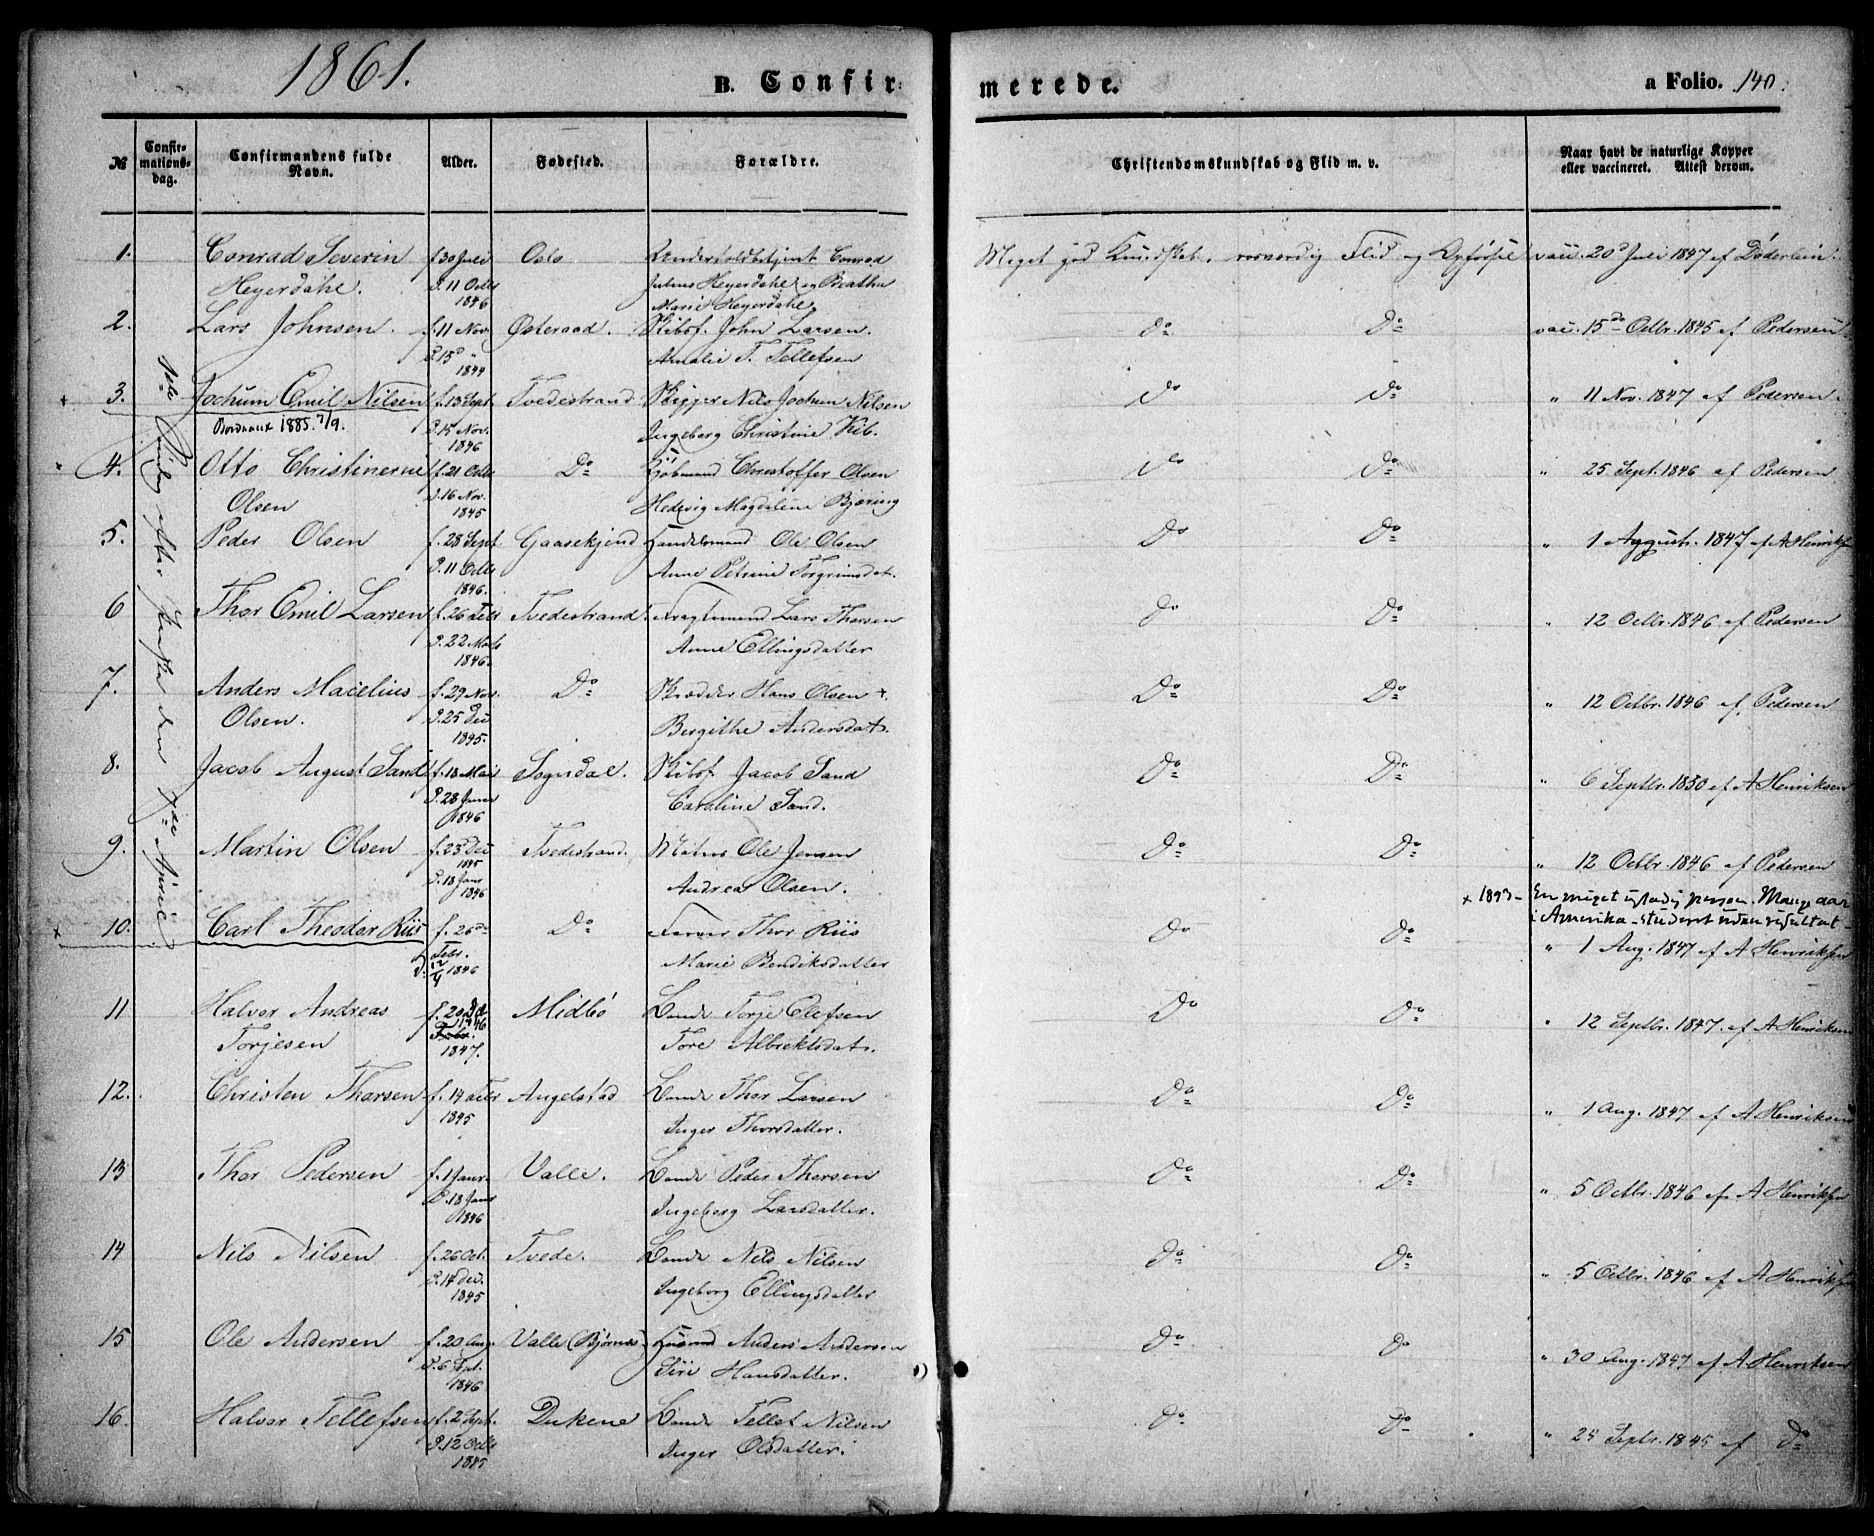 1861.
B. Confirmerede.
a Folio. 140.
№ Confirmationsdag. Confirmandens fulde Navn. Alder. Fødested. Forældre. Christendomskundskab og Flid m. v. Naar havt de naturlige Kopper eller vaccineret. Attest derom.
1ste Søndag efter Paaske den 7de April
1. Conrad Severin f. 30 Juli Oslo Conrad Meget god Kundskab, Flid og Opførsel vacc. 20 Juli 1847 af Døderlein.
Heyerdahl. D. 11 Octb Julius Heyerdahl og Beathe
1846 Marie Heyerdahl
2. Lars Johnsen. f. 11 Nov. Østeraad. Skibsf. John Larsen. Do Do vacc. 15de Octbr. 1845 af Pedersen
D. 15d " Amalie T. Tellefsen
1844
3. Jochum Emil Nilsen f. 13 Sept. Tvedestrand Skipper Nils Jochum Nilsen Do Do " 11 Nov. 1847 af Pedersen.
Bordeaux 1885. 7/9. D. 15 Nov. Ingeborg Christine Kib.
1846
4. Otto Christinerne f. 21 Octb Do Kjøbmand Christoffer Olsen Do Do " 25 Sept. 1846 af Pedersen
Olsen D. 16 Nov. Hedevig Magdalene Bjøring
1845
5. Peder Olsen f. 28 Sept Gaasekjend Handelsmand Ole Olsen Do Do " 1 August. 1847 af A Henriksen
D. 11 Octb Anne Petrine Torgrimsdat.
1846.
6 Thor Emil Larsen f. 26 Febr Tvedestrand Fragtemand Lars Thorsen Do Do " 12 Octbr. 1846 af Pedersen
D. 22 Marts Anne Ellingsdatter
1846.
7. Anders Macelius f. 29 Nov. Do Skræder Hans Olsen + Do Do " 12 Octbr. 1846 af Pedersen
Olsen. D. 25 Dec Bergithe Andersdat.
1845.
8. Jacob August Sand f. 18 Mai Sogndal. Skibsf. Jacob Sand Do Do " 6 Septbr. 1850 af A Henriksen
D. 28 Juni Caroline Sand.
1846
9. Martin Olsen f. 23 Dec Tvedestrand. Matros Ole Jensen Do Do " 12 Octbr. 1846 af Pedersen
1845
D. 18 Janr Andrea Olsen.
1846
x 1893 - En meget ustadig person. Mange aar
i Amerika - studeret uden resultat -
10. Carl Theodor Riis f. 26de Do Farver Thor Riis Do Do " 1 Aug. 1847 af A Henriksen
Febr. Marie Bendiksdatter
1846
11 Halvor Andreas f. 20 Midbø Bonde Torje Olefsen Do Do " 12 Septbr. 1847. af A Henriksen
Torjesen Febr. Tore Albrektsdat.
1847.
12. Christen Thorsen f. 14 Angelstad Bonde Thor Larsen Do Do " 1 Aug. 1847 af A Henriksen
1845 Inger Thorsdatter.
13 Thor Pedersen f. 1 Janr. Valle. Bonde Peder Thorsen Do Do " 5 Octbr. 1846 af A Henriksen
D. 18 Janr Ingeborg Larsdatter.
1846
14 Nils Nilsen f. 26 Oct. Tvede. Bonde Nils Nilsen Do Do " 5 Octbr. 1846 af A Henriksen
D. 14 Dec. Ingeborg Ellingsdatter
1845
15 Ole Andersen f. 20 Aug. Valle (Bjørnes) Husmd Anders Andersen Do Do " 30 Aug. 1847 af A Henriksen
D. 6 Sept. Siri Hansdatter.
1846
16. Halvor Tellefsen f. 2 Sept. Dukene Bonde Tellef Nilsen Do Do " 25 Septr. 1845 af Do
D. 12 Octb Inger Olsdatter.
1845